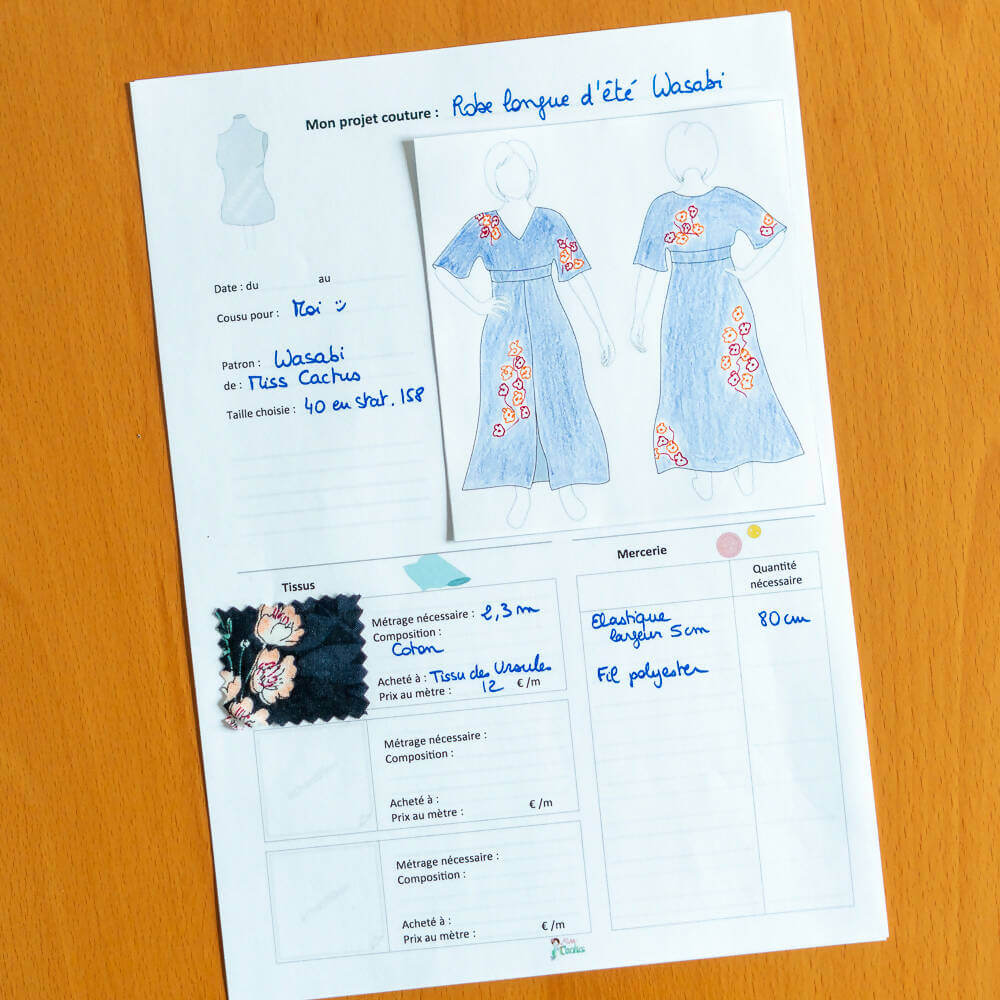 Mon projet couture : Robe longue d'été Wasabi
Date : du au
Cousu pour : Moi :)
Patron : Wasabi
de : Miss Cactus
Taille choisie : 40 en stat. 158
Tissus
Métrage nécessaire : 2,3 m
Composition :
Coton
Acheté à : Tissu des Ursules
Prix au mètre : 12 € /m
Métrage nécessaire :
Composition :
Acheté à :
Prix au mètre : € /m
Métrage nécessaire :
Composition :
Acheté à :
Prix au mètre : € /m
Mercerie
Quantité
nécessaire
Elastique
largeur 5cm 80 cm
Fil polyester
Miss
Cactus